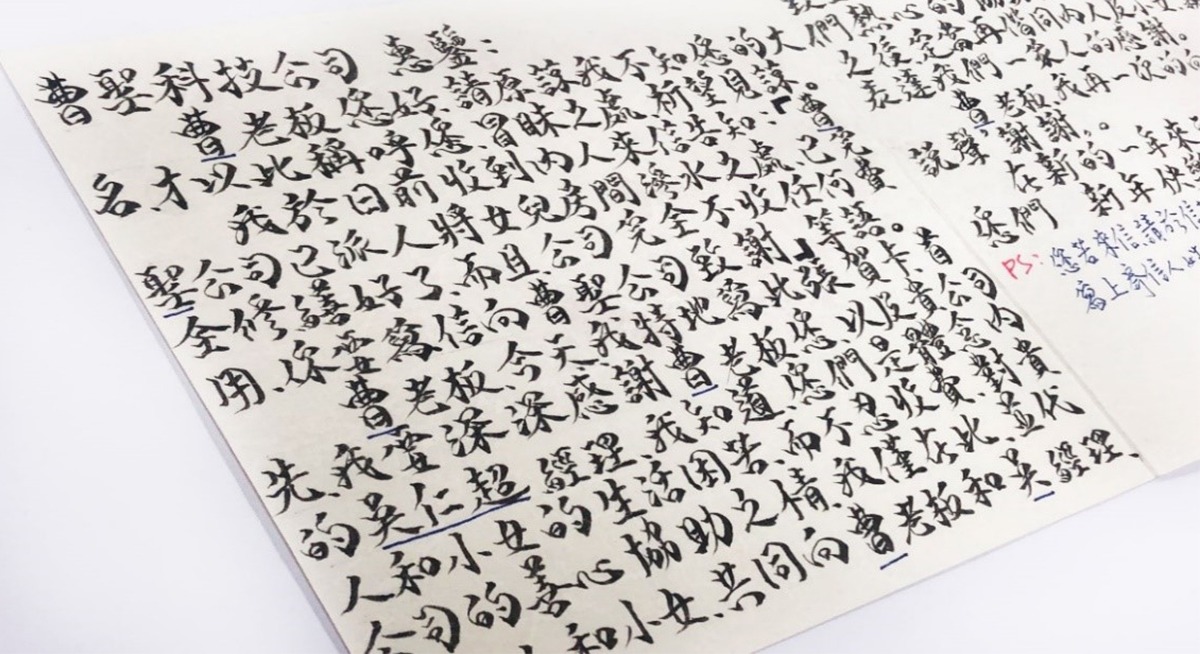 曹聖科技公司 惠鑒:
曹老板您好、請原諒我不知您的大
名、才以此稱呼您、冒昧之處、祈望見諒。
我於日前收到內人來信告知、「曹
聖公司已派人將女兒房間滲水之處、已完
全修繕好了、而且公司完全不收任何費
用、你要寫信向曹聖公司致謝」等語。
曹老板、今天、我特地寫此張賀卡、首
先、我要深深感謝曹老板您、以及貴公司
的吳仁超經理、我知道、您們是體念內
人和小女的生活困苦、而不忍收費、對貴
公司的善心協助之情、我僅在此、並代
人和小女、共同向曹老板和吳經理、
們熱心的協助
之後、定當再偕同內人及小女
表達我們一家人的感謝。
曹老板、我再一次的向
說聲謝謝。
在新的一年來
您們 新年快樂
PS: 您若來信請於信
寫上寄信人的